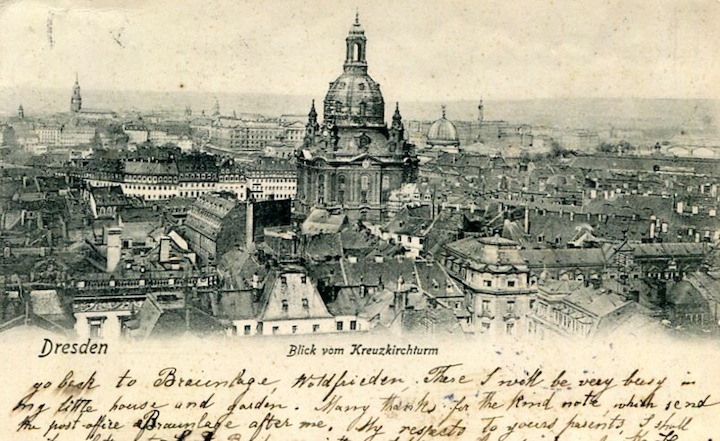 Dresden
Blick vom Kreuzkirchturm
go back to Braunlage, Woldfrieden. There I will be very busy in
my little house and garden. Many thanks for the kind note, which send
the post-office Braunlage after me. My respects to yours parents. I shall